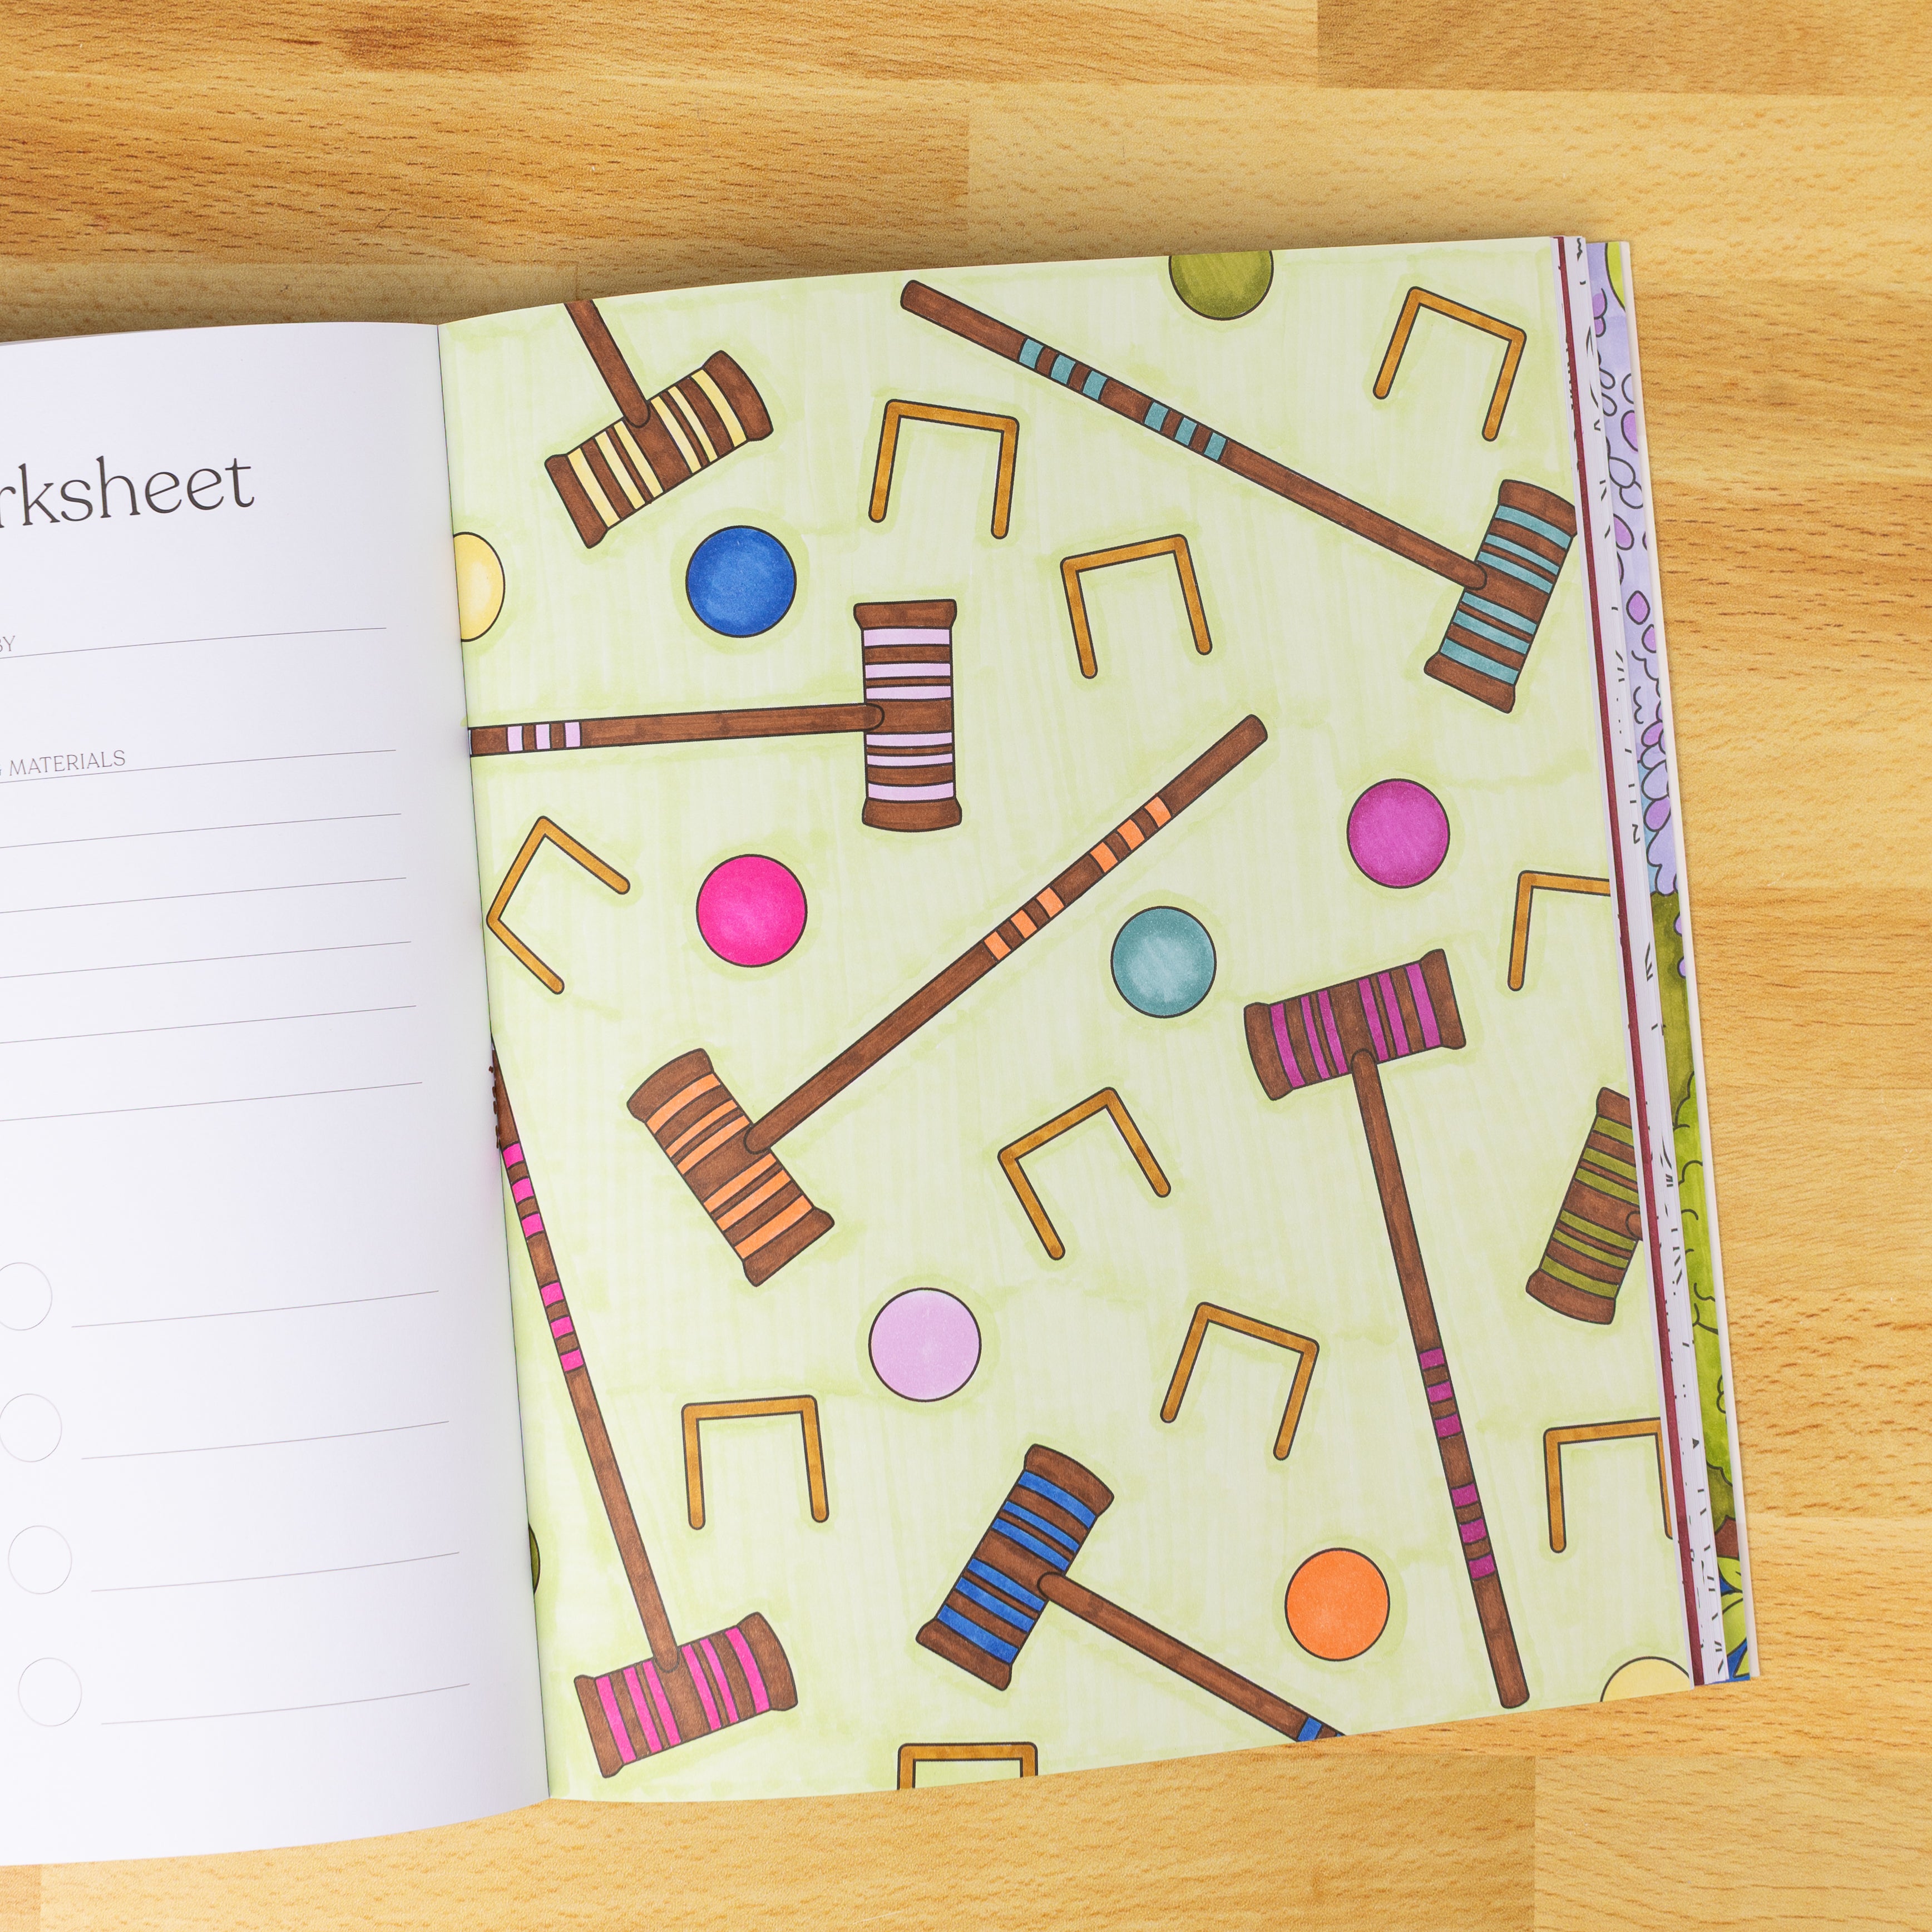 rksheet
BY
MATERIALS